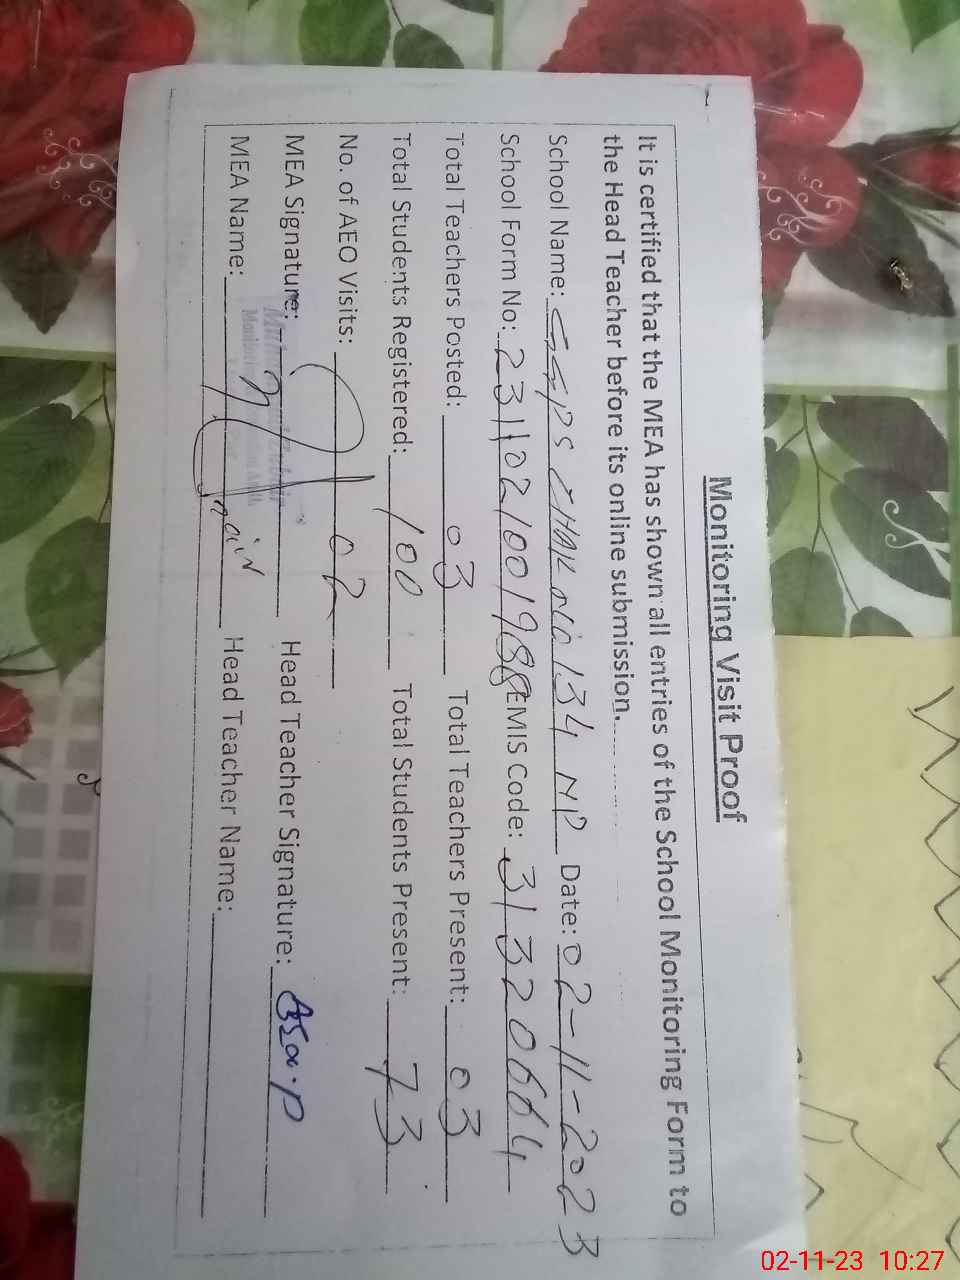 Monitoring Visit Proof
It is certified that the MEA has shown all entries of the School Monitoring Form to
the Head Teacher before its online submission.
School Name: GGPS CHAK NO 134 NP Date: 02-11-2023
School Form No: 2311021001988 EMIS Code: 31320664
Total Teachers Posted: 03 Total Teachers Present: 03
Total Students Registered: 100 Total Students Present: 73
No. of AEO Visits: 02
MEA Signature: Head Teacher Signature:
MEA Name: Head Teacher Name:
02-11-23 10:27